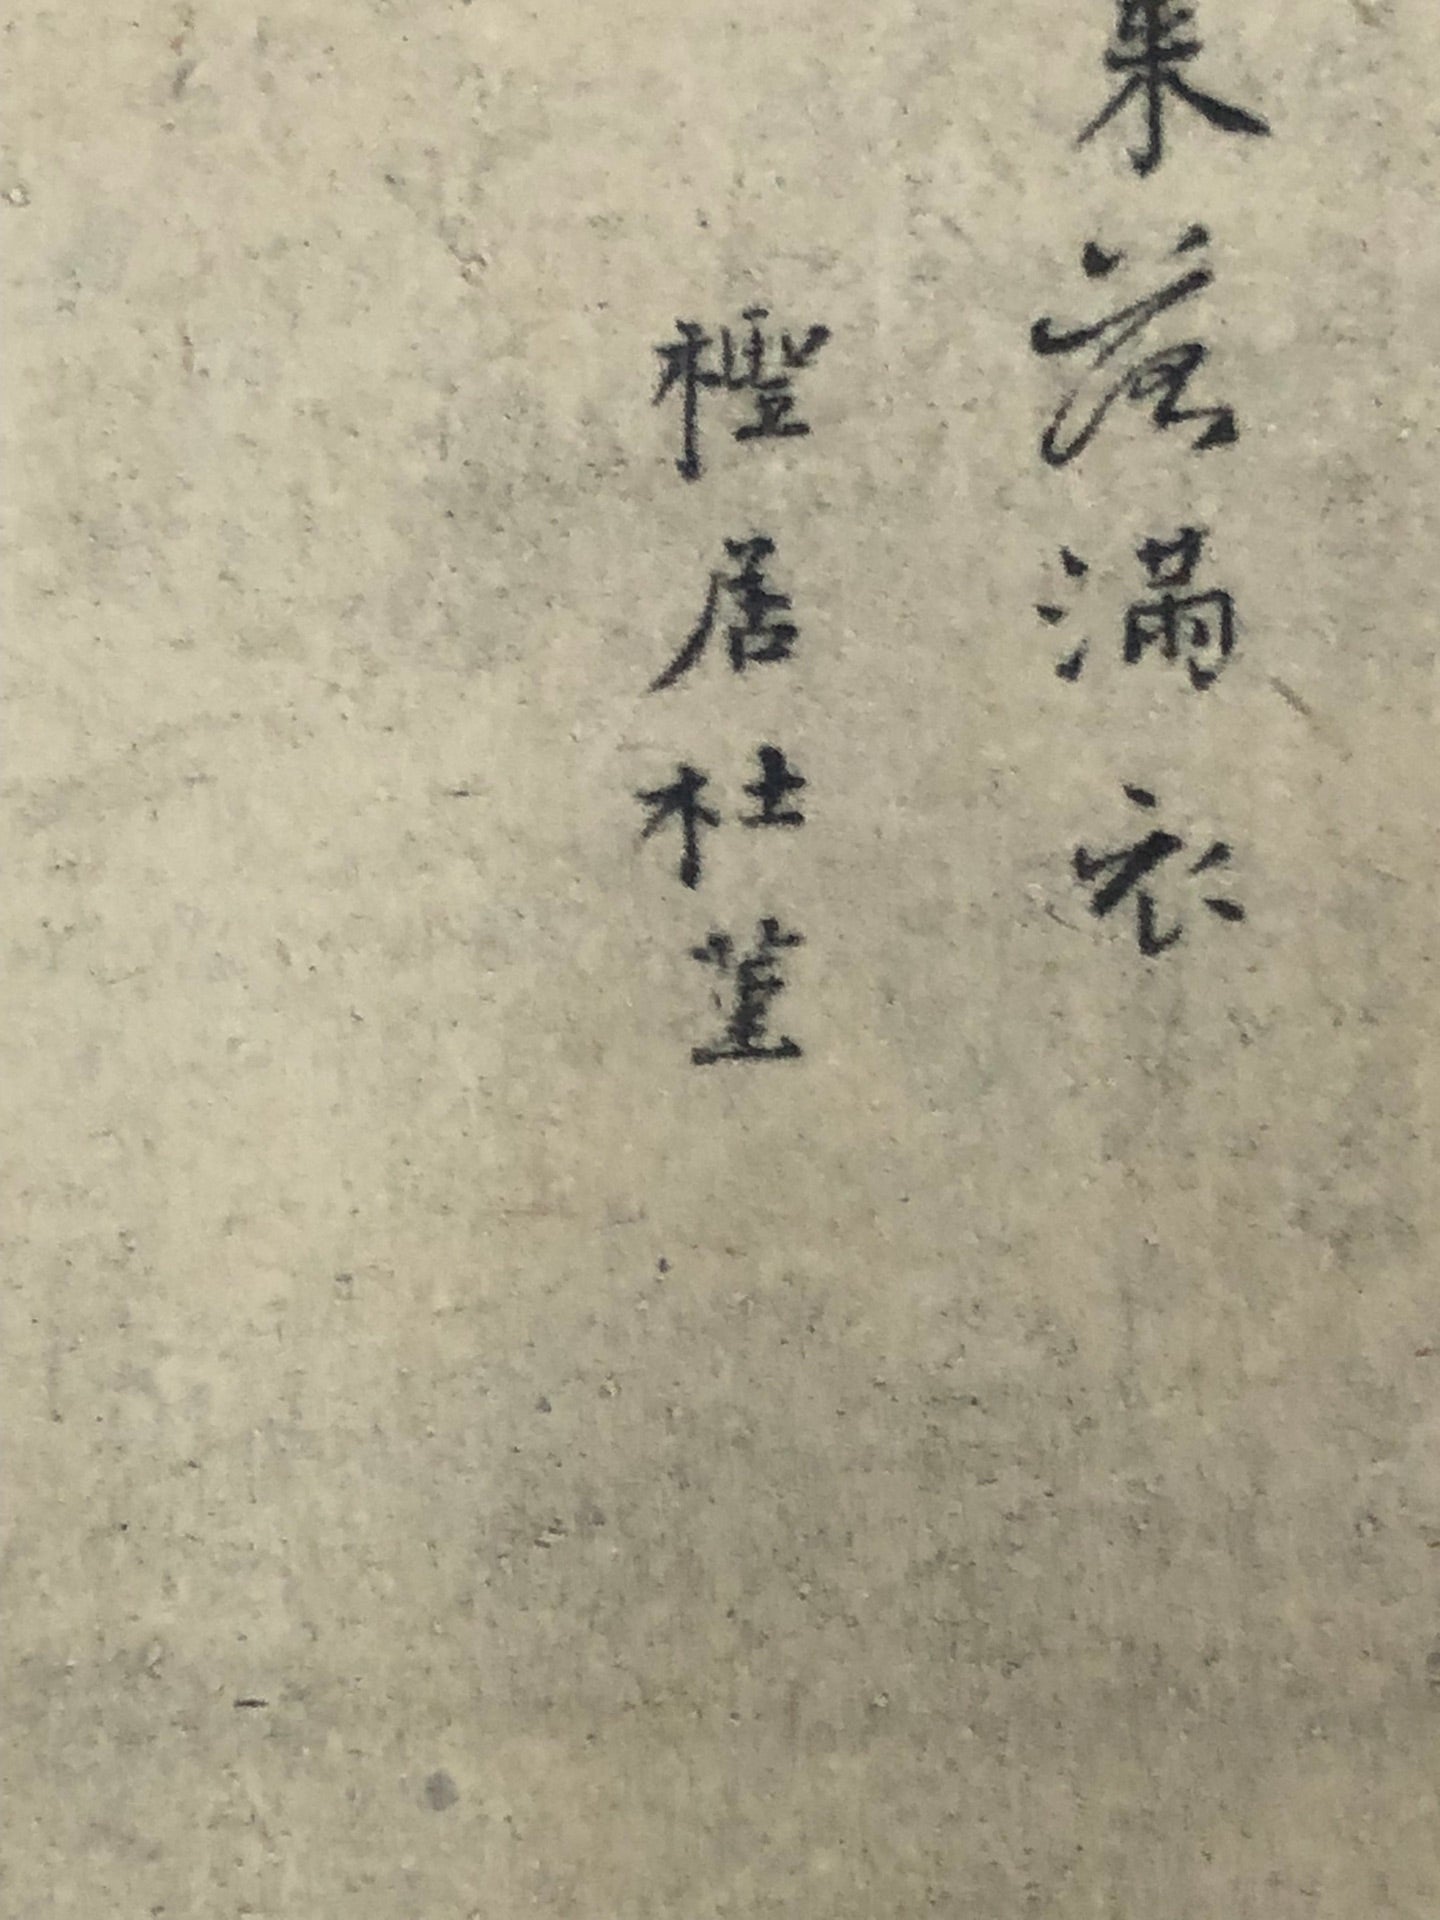 來落滿衣
檉居杜堇